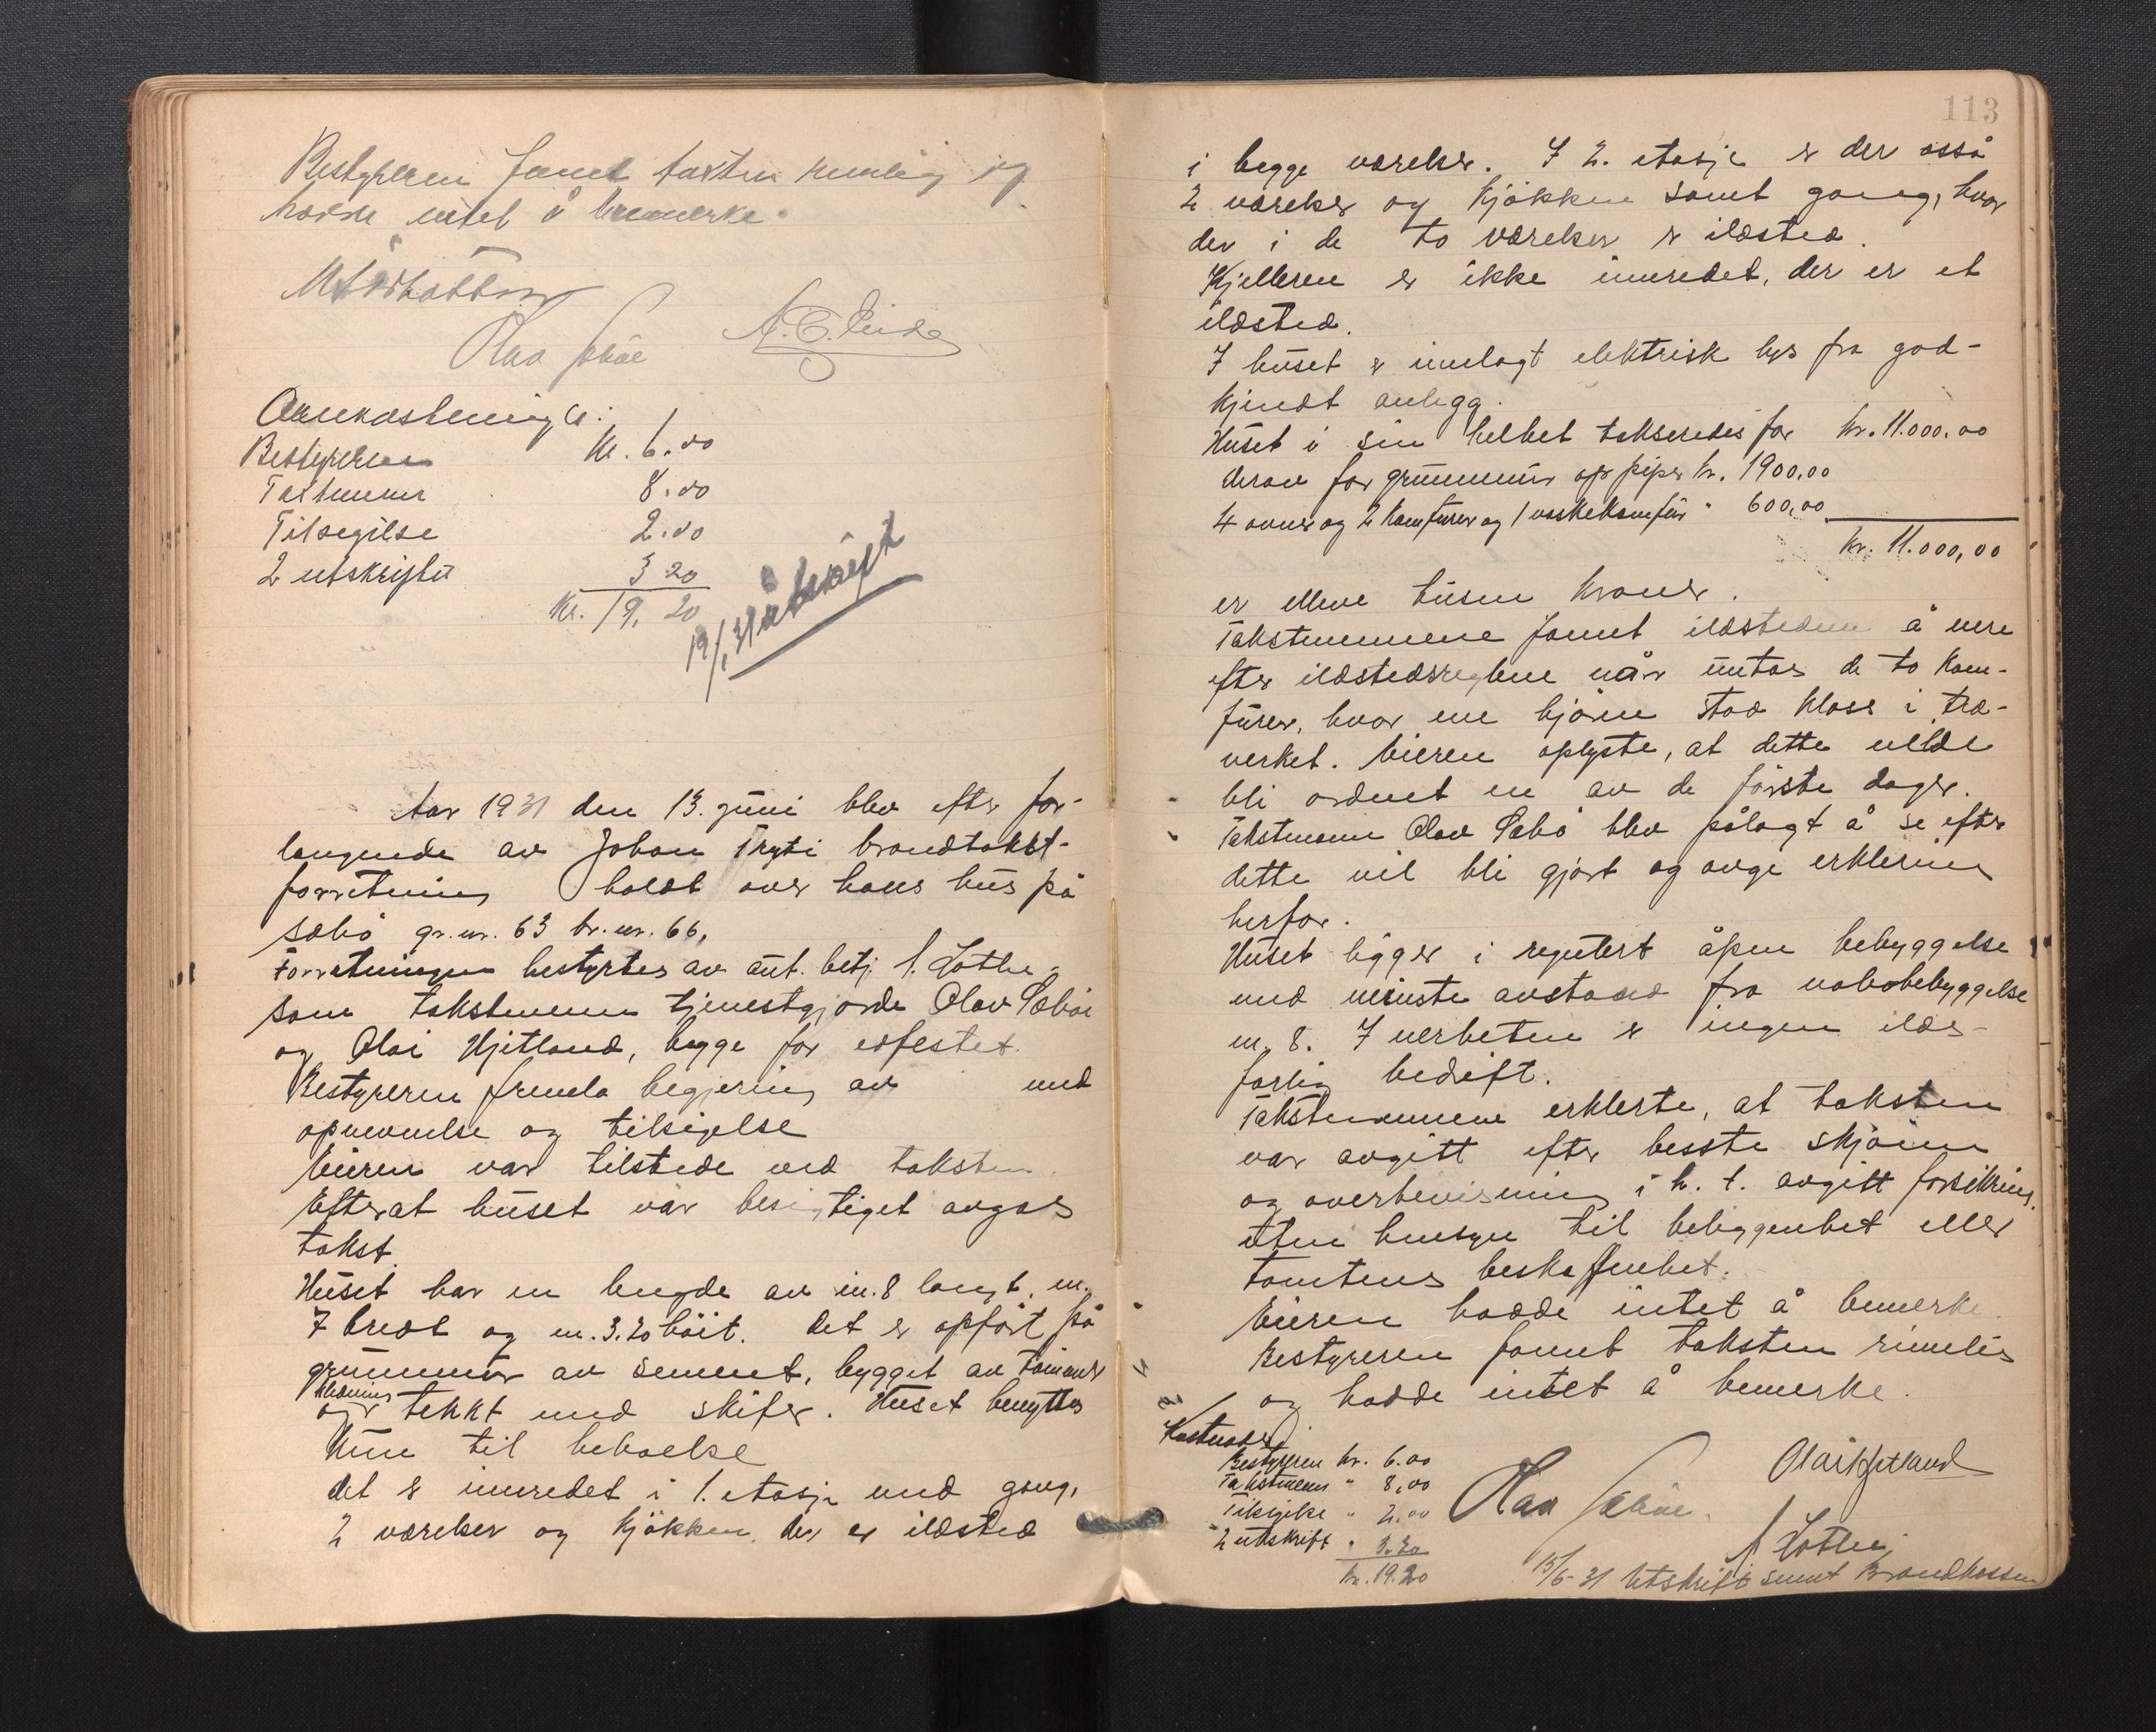 Bestyreren fandt taxten rimelig og
havde intet å bemerke.
Olav Sæbøe
Omkostninger:
Bestyreren Kr. 6.00
Taxtmenn 8.00
Tilsigelse 2.00
2 utskrifter 3 20
Kr. 19,20
19/1 31 utskrift
Aar 1931 den 13. juni blev efter for-
langende av Johan Tryti brandtakst-
forretning holdt over hans hus på
Sæbø gr. nr. 63 br. nr. 66,
Forretningen bestyrtes av aut. betj. S. Lothe,
som takstmenn tjenestgjorde Olav Sæbøe
og Olai Hjetland, begge før edfestet.
Bestyreren fremla begjering av med
opnevnelse og tilsigelse
Eieren var tilstede ved taksten.
Efterat huset var besigtiget avgaes
takst.
Huset har en lengde av m. 8 langt, m.
7 bredt og m. 3.20 høit. Det er opført på
grunnmur av sement, bygget av tømmer
kledning
og tekkt med skifer. Huset benyttes
kun til beboelse
det er innredet i 1. etasje med gang,
2 værelser og kjøkken, der er ildsted
113
i begge værelser. I 2. etasje er der også
2 værelser og kjøkken samt gang, hvor
der i de to værelser er ildsted.
Kjelleren er ikke innredet, der er et
ildsted.
I huset er innlagt elektrisk lys fra god-
kjendt anlegg.
Huset i sin helhet takseredes for kr. 11.000.00
derav for grunnmur og piper kr. 1900,00
4 ovner og 2 komfurer og 1 vaskekomfur " 600,00
kr. 11.000,00
er elleve tusen kroner.
Takstmennene fannt ildstedene å være
efter ildstedsreglene når untas de to kom-
furer, hvor ene hjørne stod kloss i træ-
verket. Eieren oplyste, at dette vilde
bli ordnet en av de første dager.
Takstmann Olav Sæbø blev pålagt å se efter
dette vil bli gjort og avge erklering
herfor.
Huset ligger i regulert åpen bebyggelse
med minste avstand fra nabobebyggelse
m. 8. I nerheten er ingen ilds-
farlig bedrift.
Takstmennene erklerte, at taksten
var avgitt efter besste skjønn
og overbevisning i h. t. avgitt forsikring,
uten hensyn til beliggenhet eller
tomtens beskaffenhet.
Eieren hadde intet å bemerke.
Bestyreren fannt taksten rimelig
og hadde intet å bemerke.
Kostnader
Bestyreren kr. 6.00
Takstmenn " 8,00
Tilsigelse " 2.00
2 utskrift " 3.20
kr. 19.20
Olav Sæbøe.
Olai Hjetland
S Lothe
15/6-31 Utskrift sennt Brandkassen